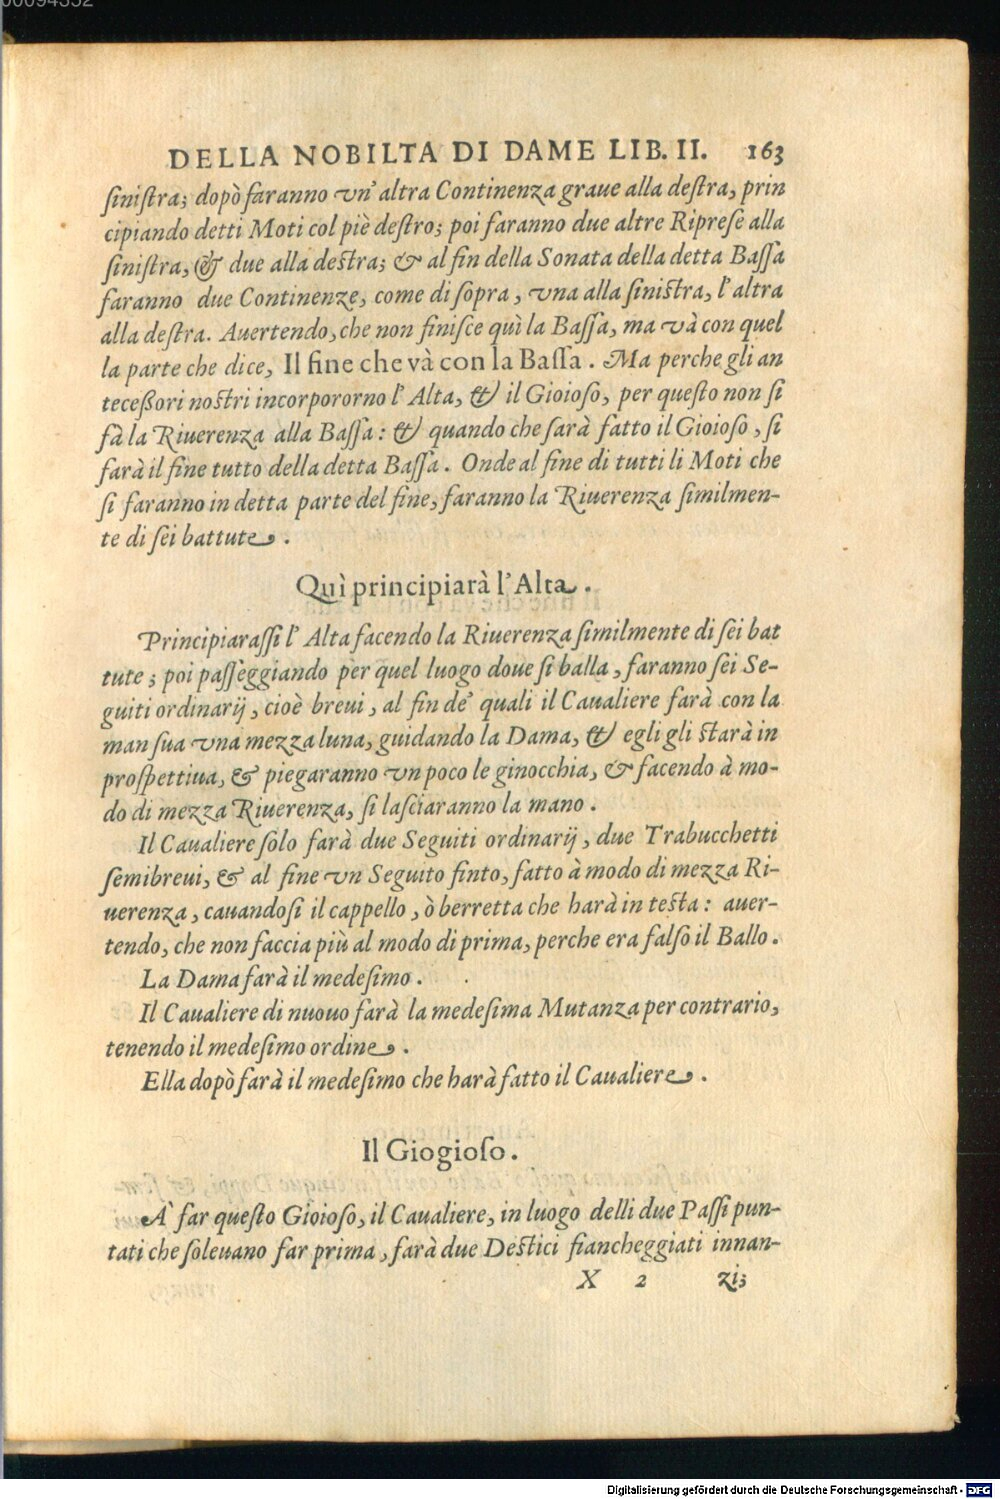 00094352
DELLA NOBILTA DI DAME LIB. II. 163
ſiniſtra; dopò faranno vn' altra Continenza graue alla deſtra, prin
cipiando detti Moti col piè deſtro; poi faranno due altre Ripreſe alla
ſiniſtra, & due alla deſtra; & al fin della Sonata della detta Baſſa
faranno due Continenze, come di ſopra, vna alla ſiniſtra, l' altra
alla deſtra. Auertendo, che non finiſce quì la Baſſa, ma và con quel
la parte che dice, Il fine che và con la Baſſa. Ma perche gli an
teceßori noſtri incorpororno l' Alta, & il Gioioſo, per queſto non ſi
fà la Riuerenza alla Baſſa: & quando che ſarà fatto il Gioioſo, ſi
farà il fine tutto della detta Baſſa. Onde al fine di tutti li Moti che
ſi faranno in detta parte del fine, faranno la Riuerenza ſimilmen-
te di ſei battute.
Quì principiarà l'Alta.
Principiaraſſi l' Alta facendo la Riuerenza ſimilmente di ſei bat
tute; poi paſſeggiando per quel luogo doue ſi balla, faranno ſei Se-
guiti ordinarij, cioè breui, al fin de' quali il Caualiere farà con la
man ſua vna mezza luna, guidando la Dama, & egli gli ſtarà in
proſpettiua, & piegaranno vn poco le ginocchia, & facendo à mo-
do di mezza Riuerenza, ſi laſciaranno la mano.
Il Caualiere ſolo farà due Seguiti ordinarij, due Trabucchetti
ſemibreui, & al fine vn Seguito finto, fatto à modo di mezza Ri-
uerenza, cauandoſi il cappello, ò berretta che harà in teſta: auer-
tendo, che non faccia più al modo di prima, perche era falſo il Ballo.
La Dama farà il medeſimo.
Il Caualiere di nuouo farà la medeſima Mutanza per contrario,
tenendo il medeſimo ordine.
Ella dopò farà il medeſimo che harà fatto il Caualiere.
Il Giogioſo.
A' far queſto Gioioſo, il Caualiere, in luogo delli due Paſſi pun-
tati che ſoleuano far prima, farà due Deſtici fiancheggiati innan-
X 2 zi;
Digitalisierung gefördert durch die Deutsche Forschungsgemeinschaft - DFG